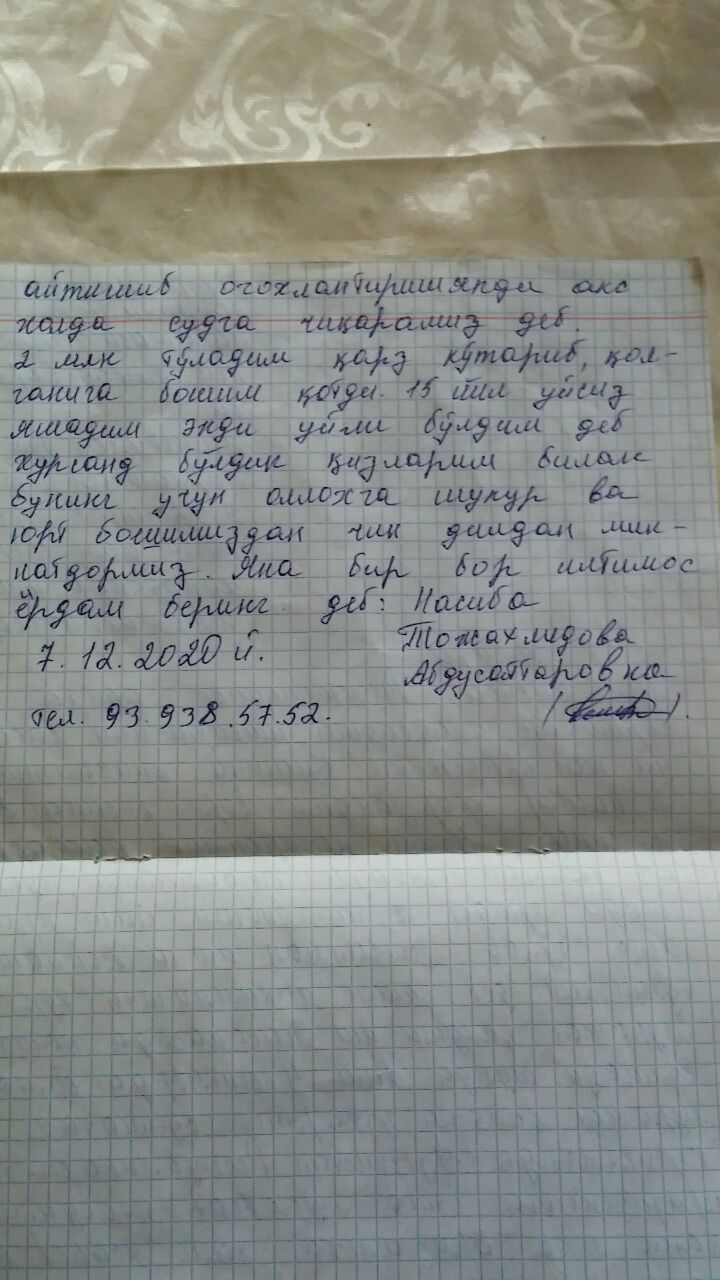 айтишиб огохлантиришяпди акс
холда судга чиқарамиз деб.
2 млн тўладим қарз кўтариб, қол-
ганига бошим қотди. 15 йил уйсиз
яшадим энди уйли бўлдим деб
хурсанд бўлдик қизларим билан
бунинг учун оллохга шукур ва
юрт бошимиздан чин дилдан мин-
натдормиз. Яна бир бор илтимос
ёрдам беринг. деб: Насиба
7.12.2020 й. Тожахмедова
Абдусаттаровна
тел. 93.938.57.52.